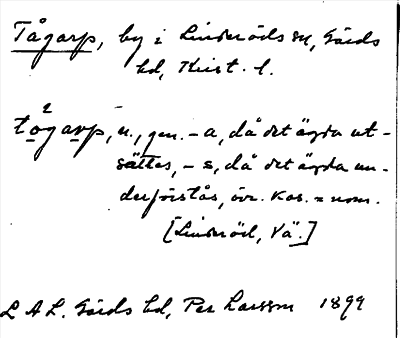 Tågarp, by i Linderöds sn, Gärds
hd, Krist. l.
2
togarp, n., gen. -a, då det ägda ut-
sättes, -s, då det ägda un-
derförstås, övr. kas. = nom.
[Linderöd, Vä.]
L A L. Gärds hd, Per Larsson 1899